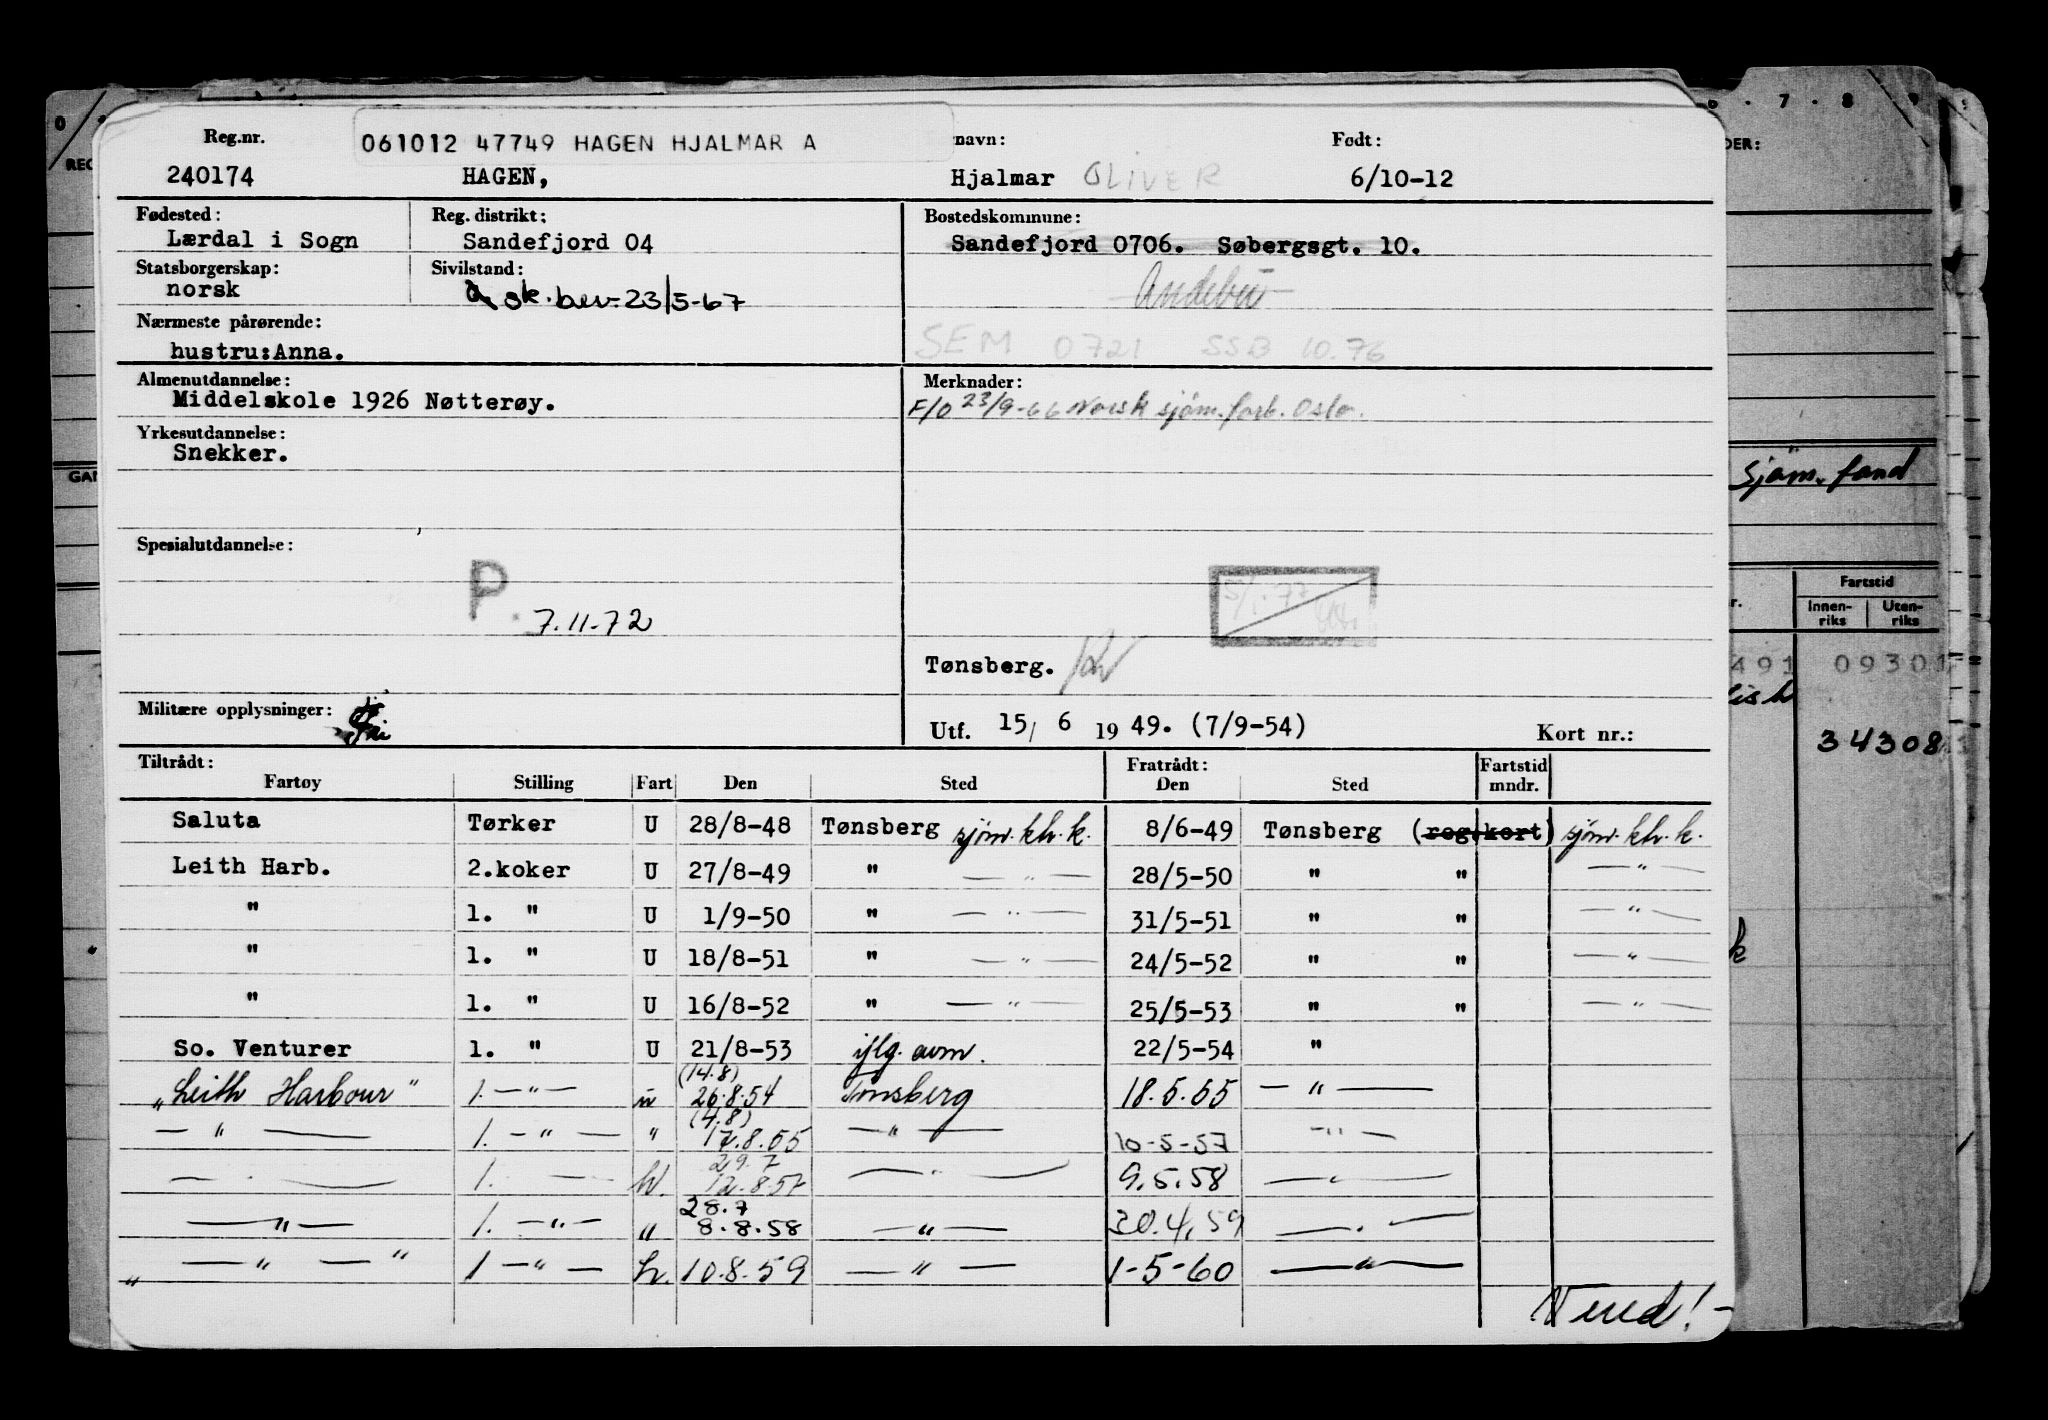 Reg.nr. 061012 47749 HAGEN HJALMAR A navn: Født:
240174 HAGEN, Hjalmar OLIVER 6/10-12
Fødested: Reg. distrikt: Bostedskommune:
Lærdal i Sogn Sandefjord 04 Sandefjord 0706. Søbergsgt. 10.
Statsborgerskap: Sivilstand: Andebu
norsk sk. bev. 23/5-67
Nærmeste pårørende: SEM 0721 SSB 10.76
hustru:Anna.
Almenutdannelse: Merknader:
Middelskole 1926 Nøtterøy. F/O 23/9-66 Norsk sjøm.forb. Oslo.
Yrkesutdannelse:
Snekker.
Sjøm. fond
Spesialutdannelse:
P. 7.11.72
5/1-77
Tønsberg.
Militære opplysninger:
Utf. 15/ 6 1949. (7/9-54) Kort nr.:
Tiltrådt: Fratrådt: Fartstid
Fartøy Stilling Fart Den Sted Den Sted mndr.
Saluta Tørker U 28/8-48 Tønsberg sjøm.kh.k. 8/6-49 Tønsberg (reg.kort) sjøm.kh.k.
Leith Harb. 2.koker U 27/8-49 " — " — 28/5-50 " " — " —
" 1. " U 1/9-50 " — " — 31/5-51 " " — " —
" 1. " U 18/8-51 " — " — 24/5-52 " " — " —
" 1. " U 16/8-52 " — " — 25/5-53 " " — " —
So. Venturer 1. " U 21/8-53 iflg. avm. 22/5-54 "
(14.8)
„Leith Harbour" 1. — " — u 26.8.54 Tønsberg 18.5.55 — " —
(4.8)
— " — 1. — " — " 17.8.55 — " — 10-5-57 — " —
29.7
— " — 1. — — 12.8.57 — " — 9.5.58 — " —
28.7
— " — 1. — " — " 8.8.58 — " — 30.4.59 — " —
„ — " — " 1 — " — 10.8.59 — " — 1-5-60 — " —
Vend!
DER:
Fartstid
Innen-riks Uten-riks
491 09301
34308